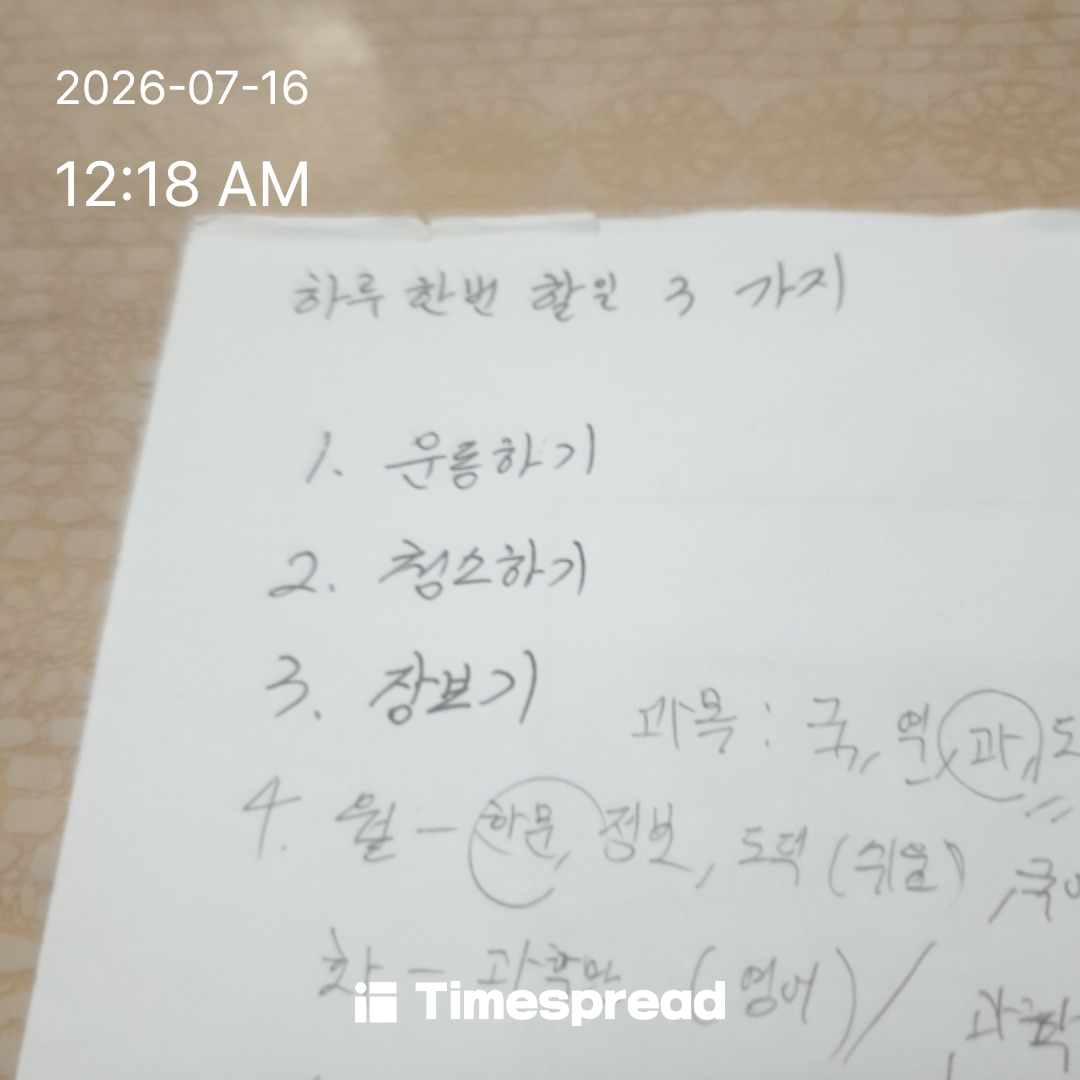 2026-07-16
12:18 AM
하루 한번 할일 3 가지
1. 운동하기
2. 청소하기
3. 장보기
과목 : 국, 역, 과, 도
4. 월 - 한문, 정보, 도덕 (쉬움), 국어
화 - 과학만 (영어) / 과학
Timespread